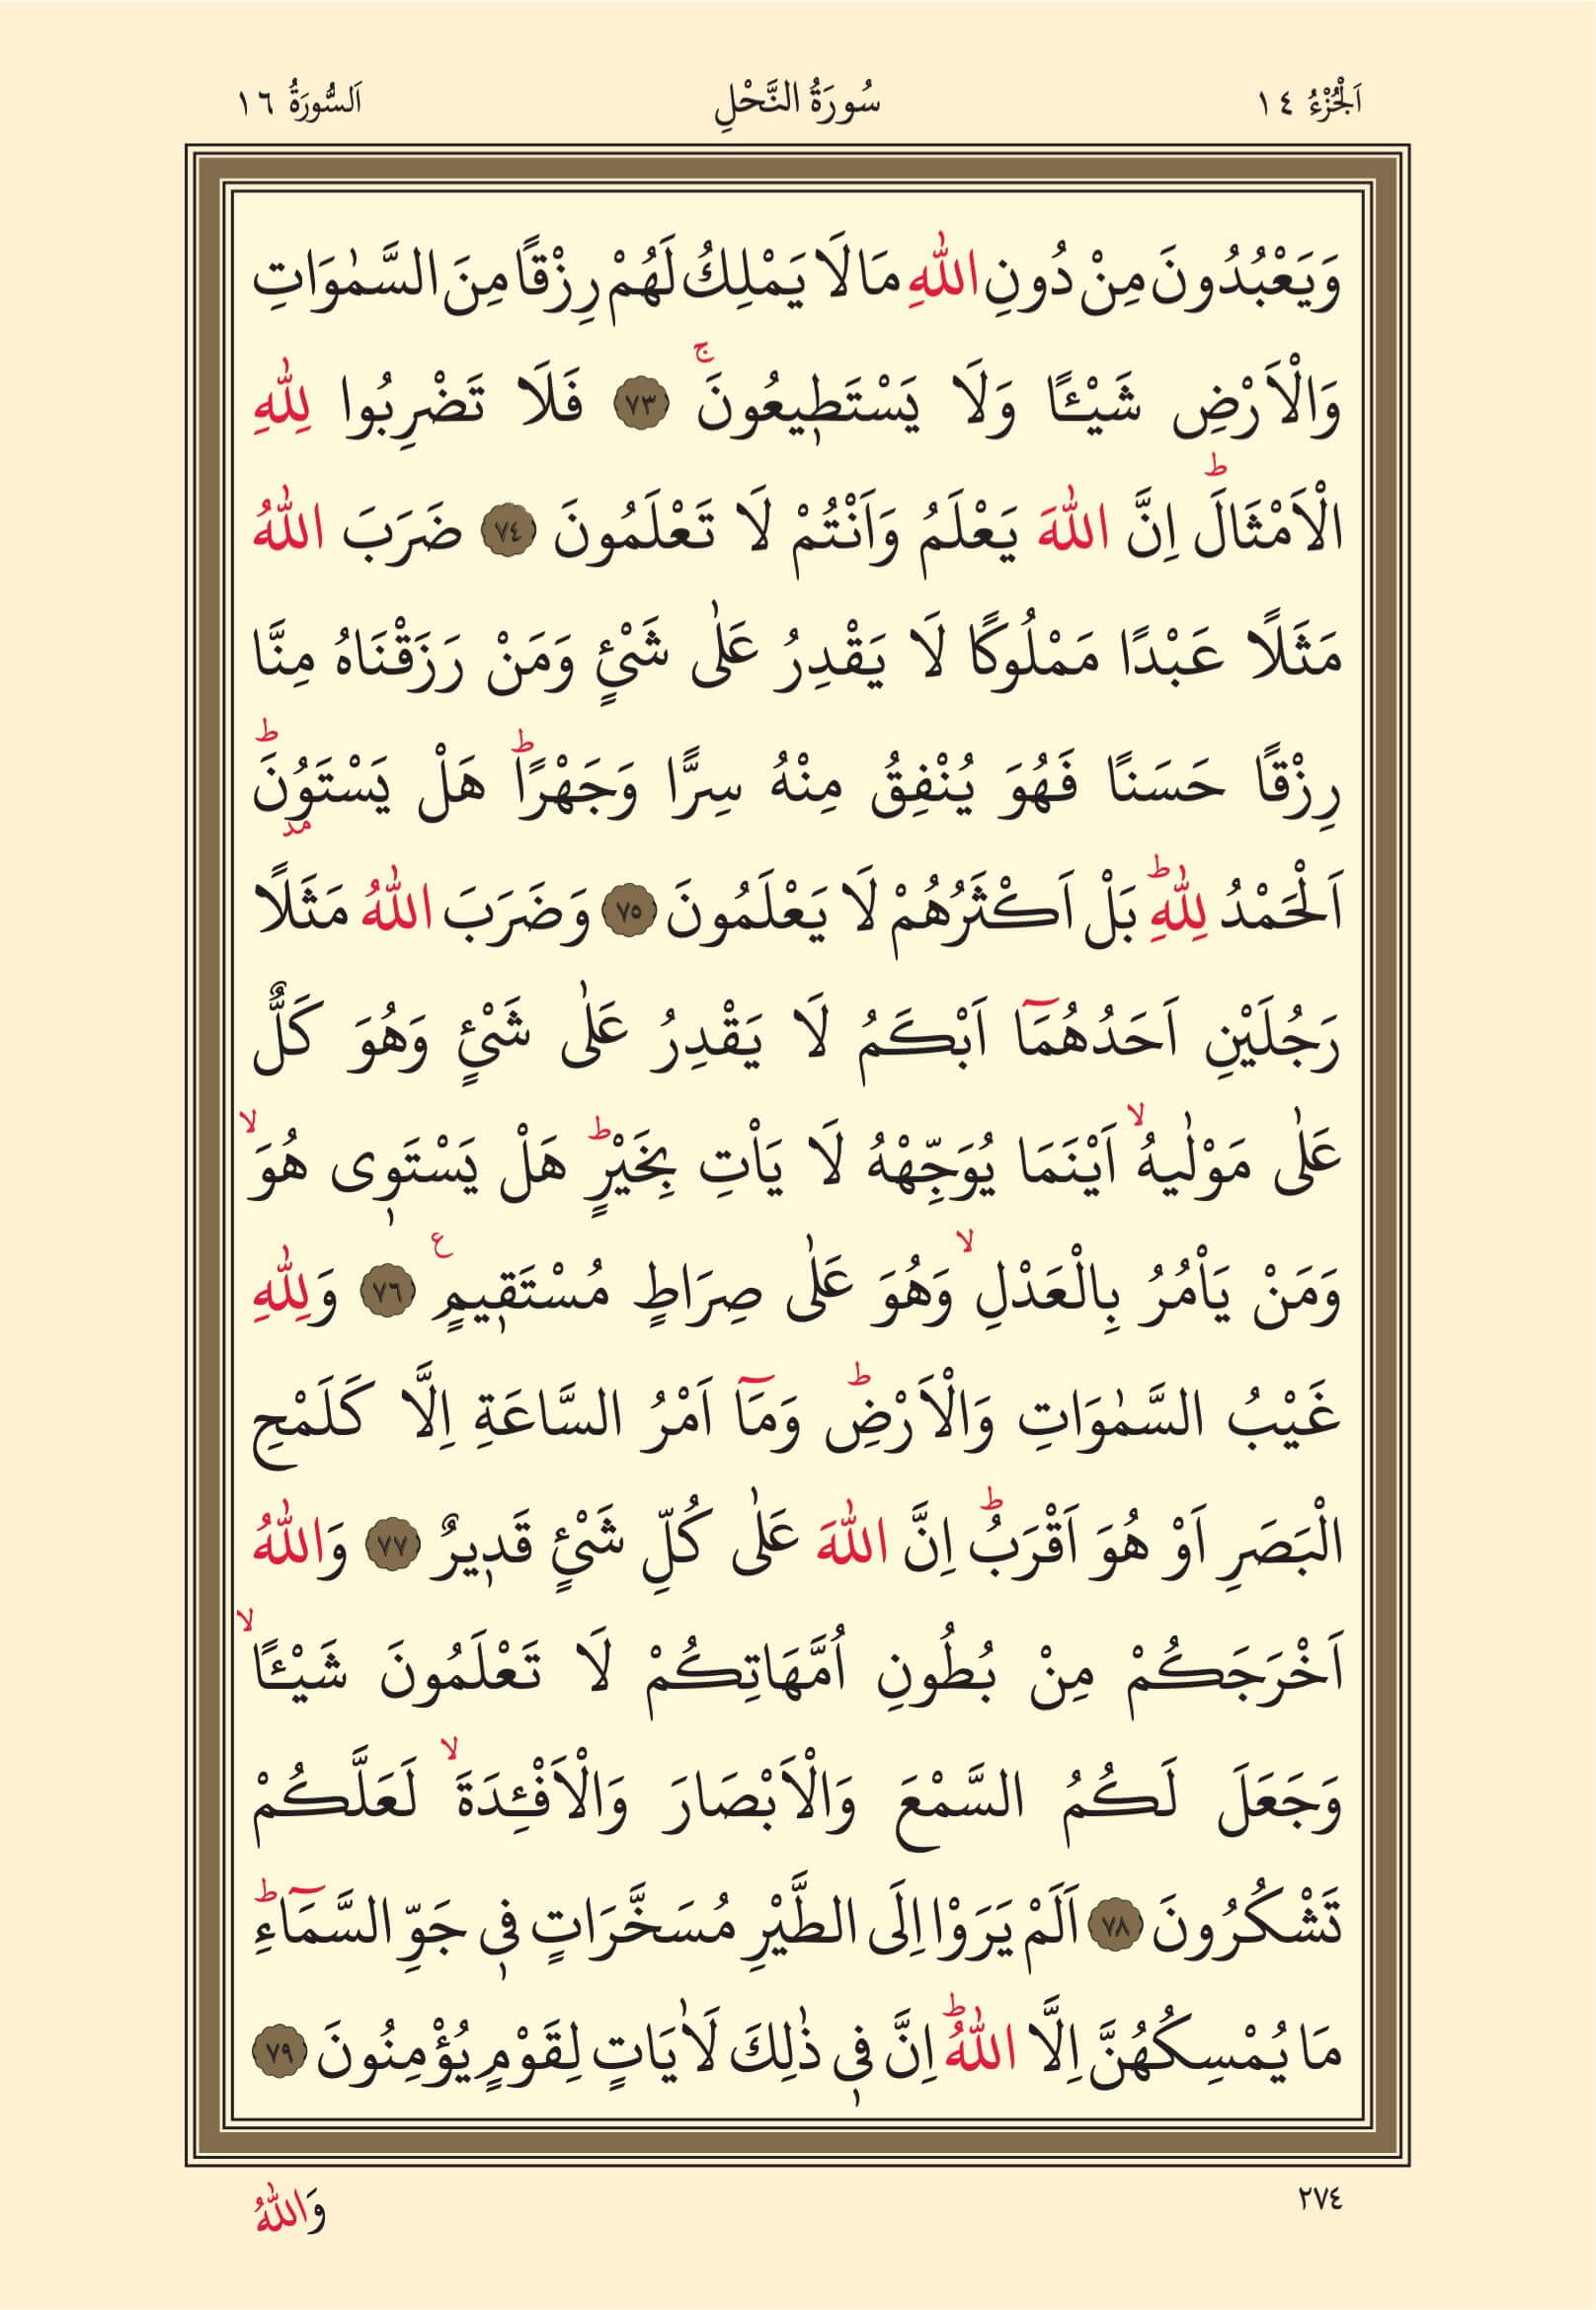 اَلْجُزْءُ ١٤
سُورَةُ النَّحْلِ
اَلسُّورَةُ ١٦
وَيَعْبُدُونَ مِنْ دُونِ اللّٰهِ مَا لَا يَمْلِكُ لَهُمْ رِزْقًا مِنَ السَّمٰوَاتِ
وَالْاَرْضِ شَيْـًٔا وَلَا يَسْتَطٖيعُونَۚ ﴿٧٣﴾ فَلَا تَضْرِبُوا لِلّٰهِ
الْاَمْثَالَؕ اِنَّ اللّٰهَ يَعْلَمُ وَاَنْتُمْ لَا تَعْلَمُونَ ﴿٧٤﴾ ضَرَبَ اللّٰهُ
مَثَلًا عَبْدًا مَمْلُوكًا لَا يَقْدِرُ عَلٰى شَيْءٍ وَمَنْ رَزَقْنَاهُ مِنَّا
رِزْقًا حَسَنًا فَهُوَ يُنْفِقُ مِنْهُ سِرًّا وَجَهْرًاؕ هَلْ يَسْتَوُنَؕ
مد
اَلْحَمْدُ لِلّٰهِؕ بَلْ اَكْثَرُهُمْ لَا يَعْلَمُونَ ﴿٧٥﴾ وَضَرَبَ اللّٰهُ مَثَلًا
رَجُلَيْنِ اَحَدُهُمَٓا اَبْكَمُ لَا يَقْدِرُ عَلٰى شَيْءٍ وَهُوَ كَلٌّ
عَلٰى مَوْلٰيهُۙ اَيْنَمَا يُوَجِّهْهُ لَا يَاْتِ بِخَيْرٍؕ هَلْ يَسْتَوٖى هُوَۙ
وَمَنْ يَاْمُرُ بِالْعَدْلِۙ وَهُوَ عَلٰى صِرَاطٍ مُسْتَقٖيمٍ ع ﴿٧٦﴾ وَلِلّٰهِ
غَيْبُ السَّمٰوَاتِ وَالْاَرْضِؕ وَمَٓا اَمْرُ السَّاعَةِ اِلَّا كَلَمْحِ
الْبَصَرِ اَوْ هُوَ اَقْرَبُؕ اِنَّ اللّٰهَ عَلٰى كُلِّ شَيْءٍ قَدٖيرٌ ﴿٧٧﴾ وَاللّٰهُ
اَخْرَجَكُمْ مِنْ بُطُونِ اُمَّهَاتِكُمْ لَا تَعْلَمُونَ شَيْـًٔاۙ
وَجَعَلَ لَكُمُ السَّمْعَ وَالْاَبْصَارَ وَالْاَفْـِٔدَةَۙ لَعَلَّكُمْ
تَشْكُرُونَ ﴿٧٨﴾ اَلَمْ يَرَوْا اِلَى الطَّيْرِ مُسَخَّرَاتٍ فٖى جَوِّ السَّمَٓاءِؕ
مَا يُمْسِكُهُنَّ اِلَّا اللّٰهُؕ اِنَّ فٖى ذٰلِكَ لَاٰيَاتٍ لِقَوْمٍ يُؤْمِنُونَ ﴿٧٩﴾
٢٧٤
وَاللّٰهُ